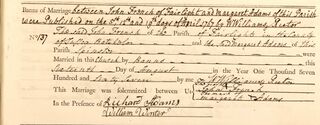 Banns of Marriage between John French of Fairlight and Margaret Adams of this Parish
were Published on the 5th 12th & 19th Days of April 1767 by W Williams Rector
No 137 The said John French of the Parish of Fairlight in the County
of Sussex Batchelor and the said Margaret Adams of this
Parish Spinster were
Married in this Church by Banns
this Sixteenth Day of August in the Year One Thousand Seven
Hundred and Sixty Seven By me W Williams Rector
This Marriage was solemnized between Us John French
Margaret Adams
In the Presence of Richard Adams
William Winter